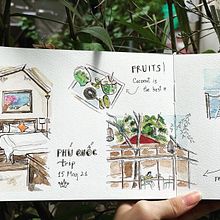 FRUITS
Coconut is
the best!!
PHÚ QUỐC
trip
15 May 21